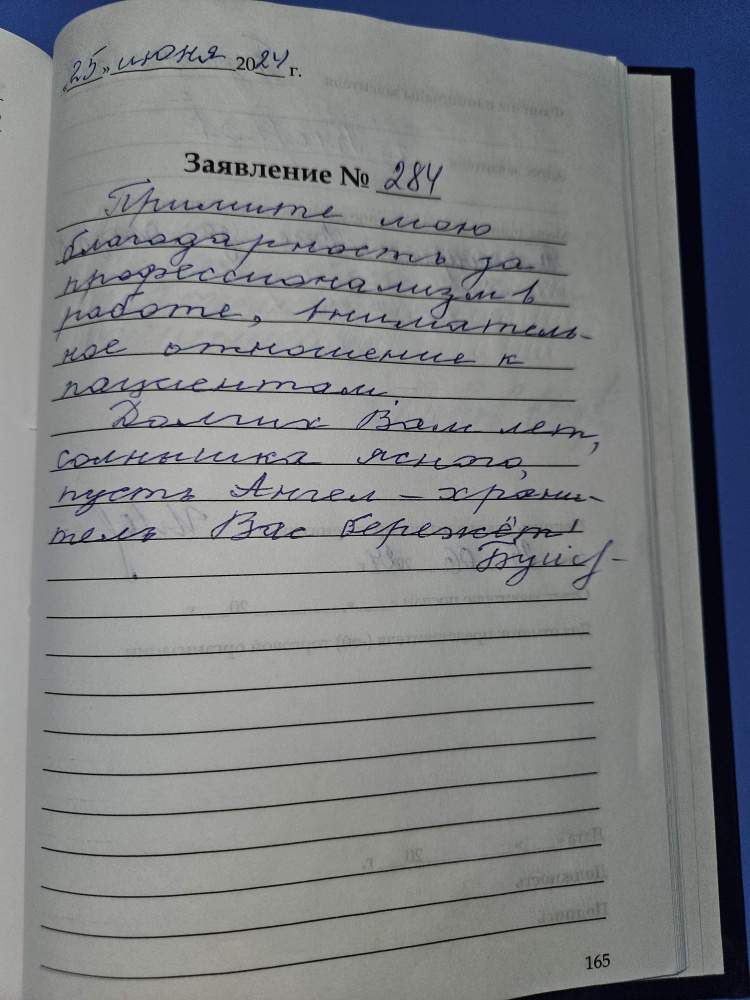 «25» июня 2024 г.
Заявление № 284
Примите мою
благодарность за
профессионализм в
работе, вниматель-
ное отношение к
пациентам.
Долгих Вам лет,
солнышка ясного,
пусть Ангел – храни-
тель Вас бережёт!
165